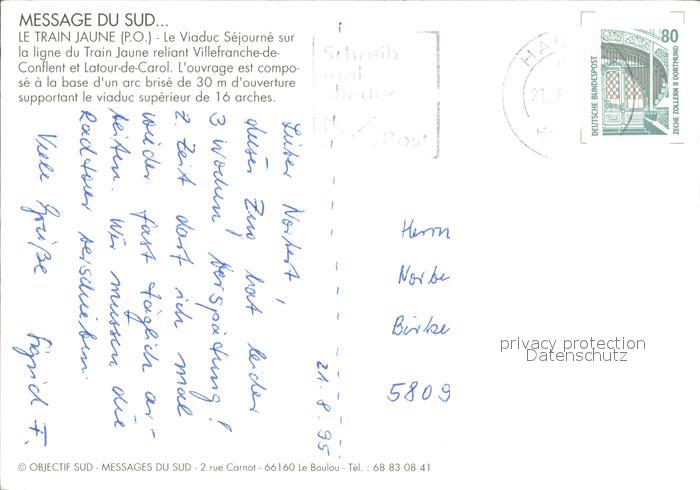 MESSAGE DU SUD...
LE TRAIN JAUNE (P.O.) - Le Viaduc Séjourné sur
la ligne du Train Jaune reliant Villefranche-de-
Conflent et Latour-de-Carol. L'ouvrage est compo-
sé à la base d'un arc brisé de 30 m d'ouverture
supportant le viaduc supérieur de 16 arches.
Schreib
mal
wieder
Post
HAG
21. 8
80
DEUTSCHE BUNDESPOST
ZECHE ZOLLERN II DORTMUND
21.8.95
Lieber Norbert,
dieser Zug hat leider
3 Wochen Verspätung!
Z. Zeit darf ich mal
wieder fast täglich ar-
beiten. Wir müssen die
Radtour verschieben.
Viele Grüße Sigrid F.
Herrn
Norbe
Birke
5809
privacy protection
Datenschutz
© OBJECTIF SUD - MESSAGES DU SUD - 2 rue Carnot - 66160 Le Boulou - Tél. : 68 83 08 41